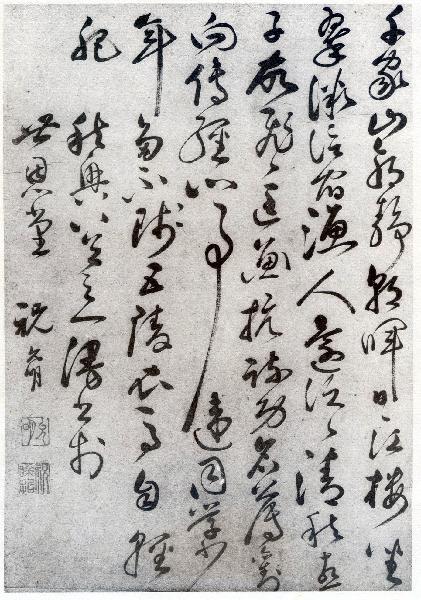 千家山郭靜朝暉日〻江樓坐
翠微信宿漁人還泛〻清秋燕
子故飛〻匡衡抗疏功名薄劉
向傳經心事違同學少
年多不賤五陵衣馬自輕
肥 秋興八首之一漫書於
世恩堂 祝允明